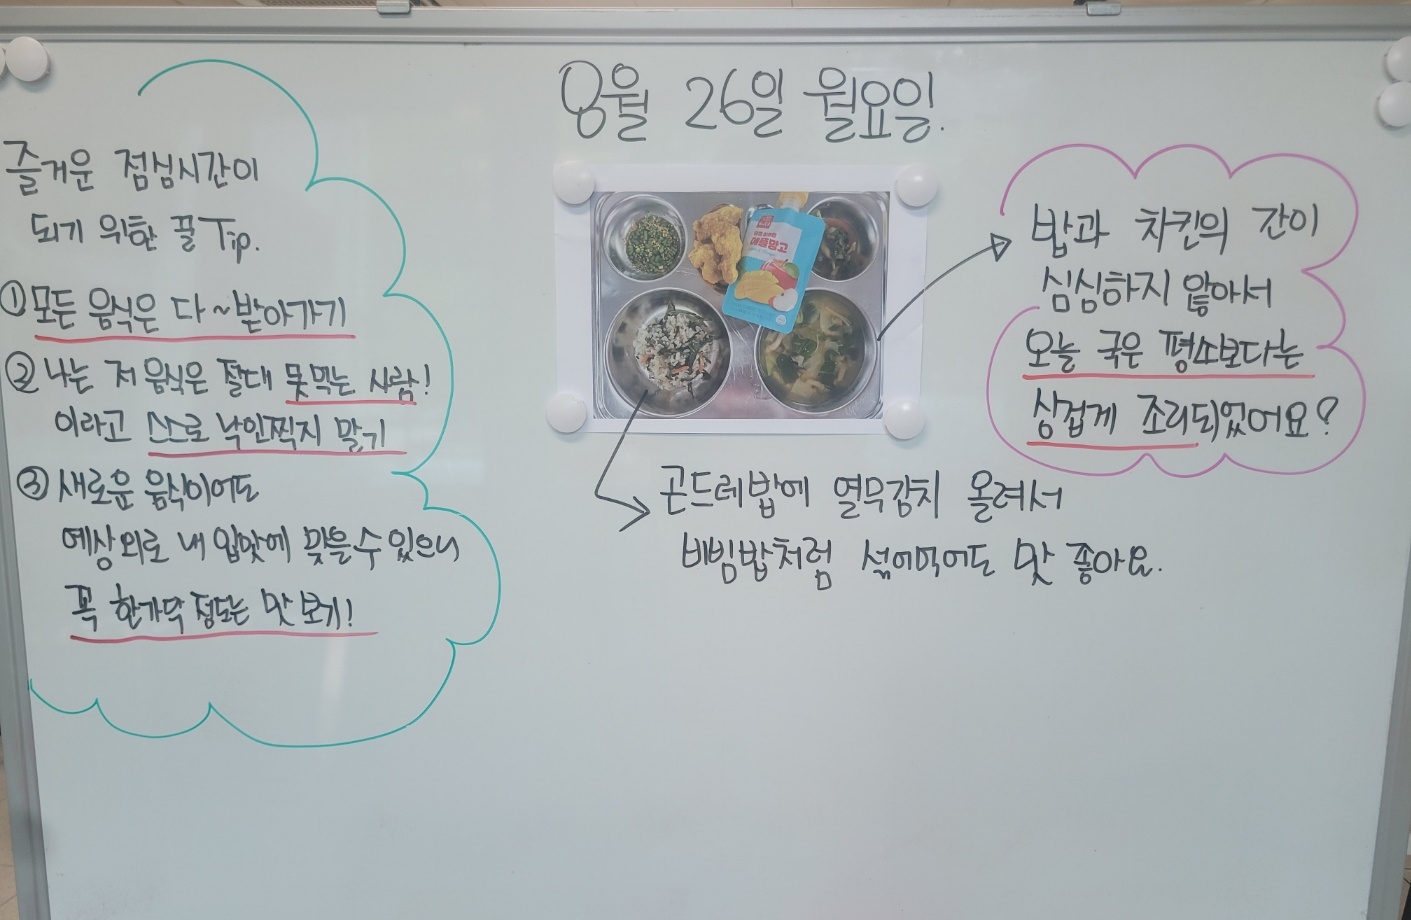 8월 26일 월요일.
즐거운 점심시간이
되기 위한 꿀 Tip.
① 모든 음식은 다~받아가기
② 나는 저 음식은 절대 못먹는 사람!
이라고 스스로 낙인찍지 말기
③ 새로운 음식이어도
예상외로 내 입맛에 맞을 수 있으니
꼭 한가닥 정도는 맛 보기!
애플망고
밥과 치킨의 간이
심심하지 않아서
오늘 국은 평소보다는
싱겁게 조리되었어요?
곤드레밥에 열무김치 올려서
비빔밥처럼 섞어먹어도 맛 좋아요.